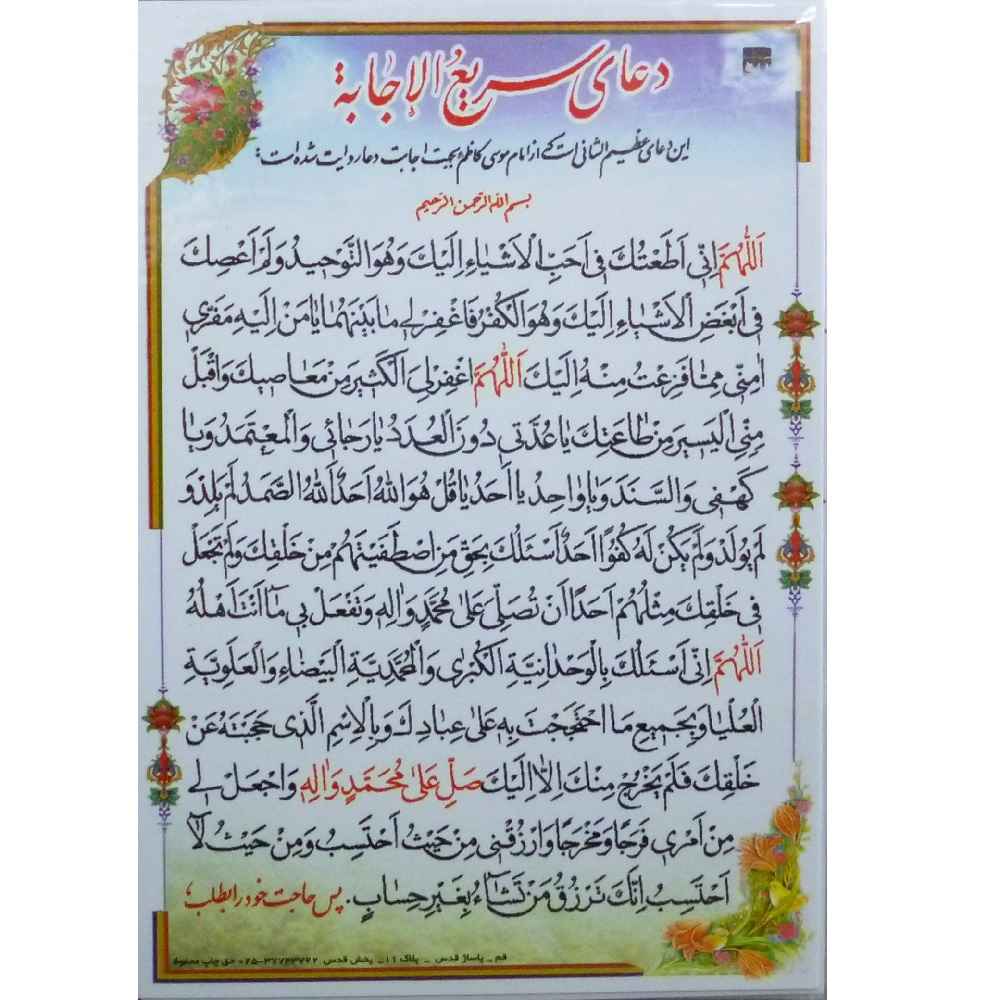 دعای سریع الإجابة
این دعای عظیم الشانی است که از امام موسی کاظم بجهت اجابت دعا روایت شده است:
بسم الله الرحمن الرحیم
اَللّٰهُمَّ اِنّی اَطَعْتُكَ فی اَحَبِّ الْاَشْیٰاءِ اِلَیْكَ وَهُوَ التَّوْحیدُ وَلَمْ اَعْصِكَ
فی اَبْغَضِ الْاَشْیٰاءِ اِلَیْكَ وَهُوَ الْكُفْرُ فَاغْفِرْ لی مٰا بَیْنَهُمٰا یٰا مَنْ اِلَیْهِ مَفَرّی
اٰمِنّی مِمّٰا فَزِعْتُ مِنْهُ اِلَیْكَ اَللّٰهُمَّ اغْفِرْ لِیَ الْكَثیرَ مِنْ مَعٰاصیكَ وَاقْبَلْ
مِنِّی الْیَسیرَ مِنْ طٰاعَتِكَ یٰا عُدَّتی دُونَ الْعُدَدِ یٰا رَجٰائی وَالْمُعْتَمَدُ وَیٰا
كَهْفی وَالسَّنَدَ وَیٰا وٰاحِدُ یٰا اَحَدُ یٰا قُلْ هُوَ اللّٰهُ اَحَدٌ اَللّٰهُ الصَّمَدُ لَمْ یَلِدْ وَ
لَمْ یُولَدْ وَلَمْ یَكُنْ لَهُ كُفُوًا اَحَدٌ اَسْئَلُكَ بِحَقِّ مَنِ اصْطَفَیْتَهُمْ مِنْ خَلْقِكَ وَلَمْ تَجْعَلْ
فی خَلْقِكَ مِثْلَهُمْ اَحَدًا اَنْ تُصَلِّیَ عَلیٰ مُحَمَّدٍ وَاٰلِهِ وَتَفْعَلَ بی مٰا اَنْتَ اَهْلُهُ
اَللّٰهُمَّ اِنّی اَسْئَلُكَ بِالْوَحْدٰانِیَّةِ الْكُبْرٰی وَالْمُحَمَّدِیَّةِ الْبَیْضٰاءِ وَالْعَلَوِیَّةِ
الْعُلْیٰا وَبِجَمیعِ مَا احْتَجَجْتَ بِهِ عَلیٰ عِبٰادِكَ وَبِالْاِسْمِ الَّذی حَجَبْتَهُ عَنْ
خَلْقِكَ فَلَمْ یَخْرُجْ مِنْكَ اِلّٰا اِلَیْكَ صَلِّ عَلیٰ مُحَمَّدٍ وَاٰلِهِ وَاجْعَلْ لی
مِنْ اَمْری فَرَجًا وَمَخْرَجًا وَارْزُقْنی مِنْ حَیْثُ اَحْتَسِبُ وَمِنْ حَیْثُ لٰا
اَحْتَسِبُ اِنَّكَ تَرْزُقُ مَنْ تَشٰاءُ بِغَیْرِ حِسٰابٍ. پس حاجت خود را بطلب؛
قم _ پاساژ قدس _ پلاک ۱۱_ پخش قدس ۳۷۷۴۳۷۲۲-۰۲۵ حق چاپ محفوظ